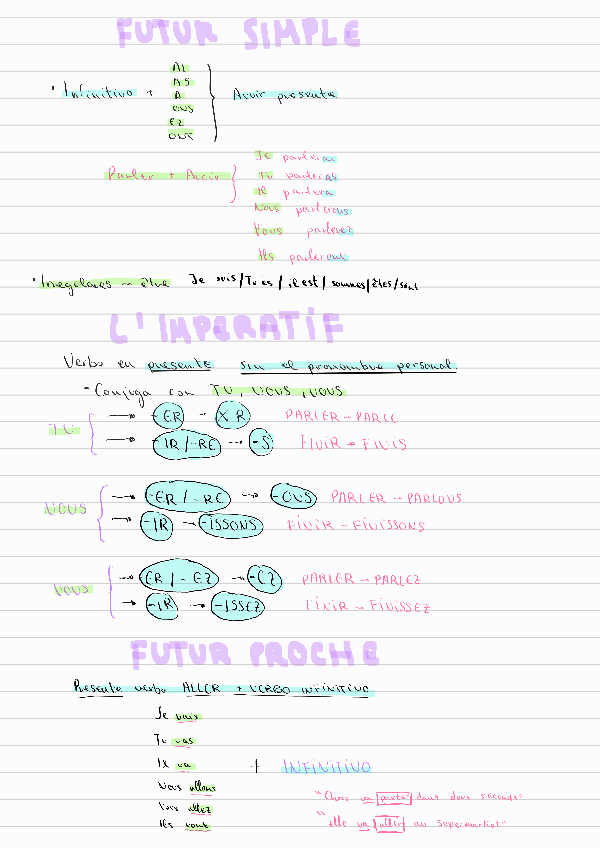 FUTUR SIMPLE
AI
AS
· Infinitivo + A } Avoir presente
ONS
EZ
ONT
Je parlerai
Parler + Avoir { Tu parleras
Il parlera
Nous parlerons
Vous parlerez
Ils parleront
· Irregulares → être Je suis/Tu es/il est/sommes/êtes/sont
L'IMPERATIF
Verbo en presente sin el pronombre personal.
- Conjuga con TU, NOUS, VOUS
TU { → -ER → X R PARLER → PARLE
→ -IR/-RE → -S FINIR → FINIS
NOUS { → -ER/-RE → -ONS PARLER → PARLONS
→ -IR → -ISSONS FINIR → FINISSONS
VOUS { → -ER/-EZ → -EZ PARLER → PARLEZ
→ -IR → -ISSEZ FINIR → FINISSEZ
FUTUR PROCHE
Presente verbo ALLER + VERBO INFINITIVO
Je vais
Tu vas
Il va + INFINITIVO
Nous allons
Vous allez
Ils vont
va partir dans deux seconds"
"elle va aller au supermarket"